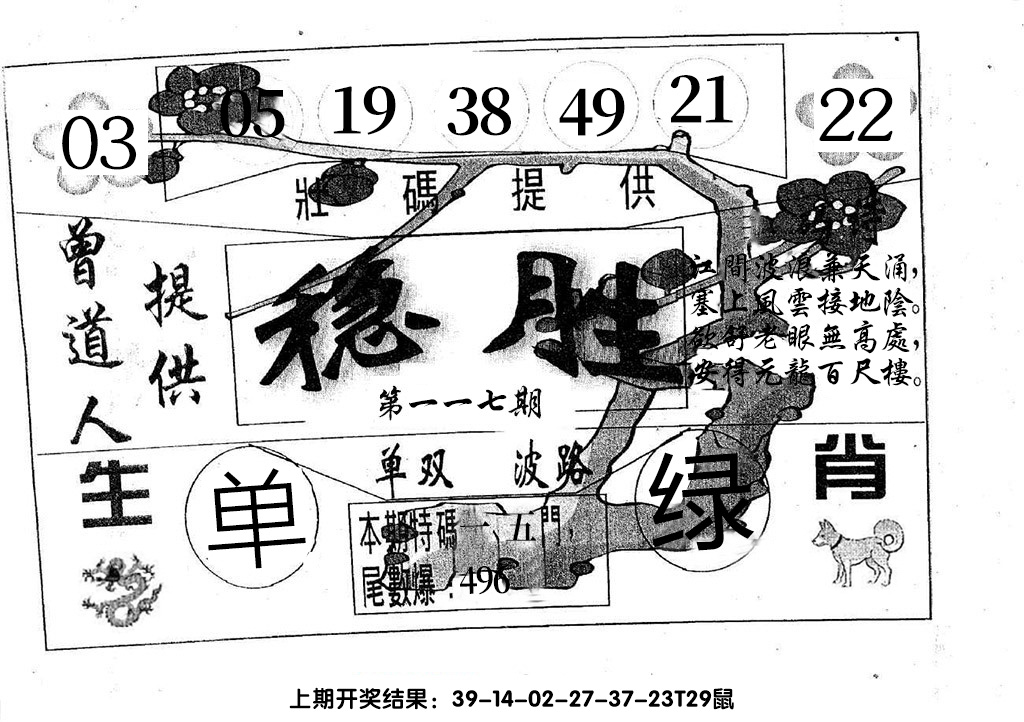 03 05 19 38 49 21 22
壯碼提供
曾道人
提供
稳胜
第一一七期
江間波浪兼天涌，
塞上風雲接地陰。
欲舒老眼無高處，
安得元龍百尺樓。
单双 波路
生肖
单
绿
本期特碼一、五門，
尾數爆：496
上期开奖结果：39-14-02-27-37-23T29鼠